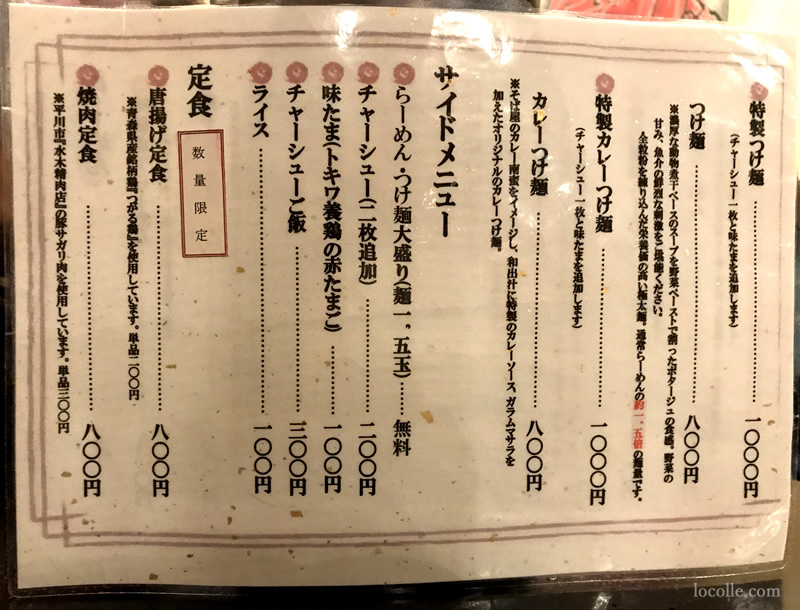 特製つけ麺……一〇〇〇円
（チャーシュー一枚と味たまを追加します）
つけ麺……八〇〇円
※濃厚な動物煮干ベースのスープを野菜ペーストで割ったポタージュの食感。野菜の
甘み、魚介の鮮烈な刺激をご堪能ください。
全粒粉を練り込んだ栄養価の高い極太麺。通常らーめんの約一．五倍の麺量です。
特製カレーつけ麺……一〇〇〇円
（チャーシュー一枚と味たまを追加します）
カレーつけ麺……八〇〇円
※そば屋のカレー南蛮をイメージし、和出汁に特製のカレーソース、ガラムマサラを
加えたオリジナルのカレーつけ麺。
サイドメニュー
らーめん・つけ麺大盛り（麺一．五玉）……無料
チャーシュー（二枚追加）……二〇〇円
味たま（トキワ養鶏の赤たまご）……一〇〇円
チャーシューご飯……三〇〇円
ライス……一〇〇円
定食
数量限定
唐揚げ定食……八〇〇円
※青森県産銘柄鶏『つがる鶏』を使用しています。単品二〇〇円
焼肉定食……八〇〇円
※平川市『水木精肉店』の豚サガリ肉を使用しています。単品三〇〇円
locolle.com